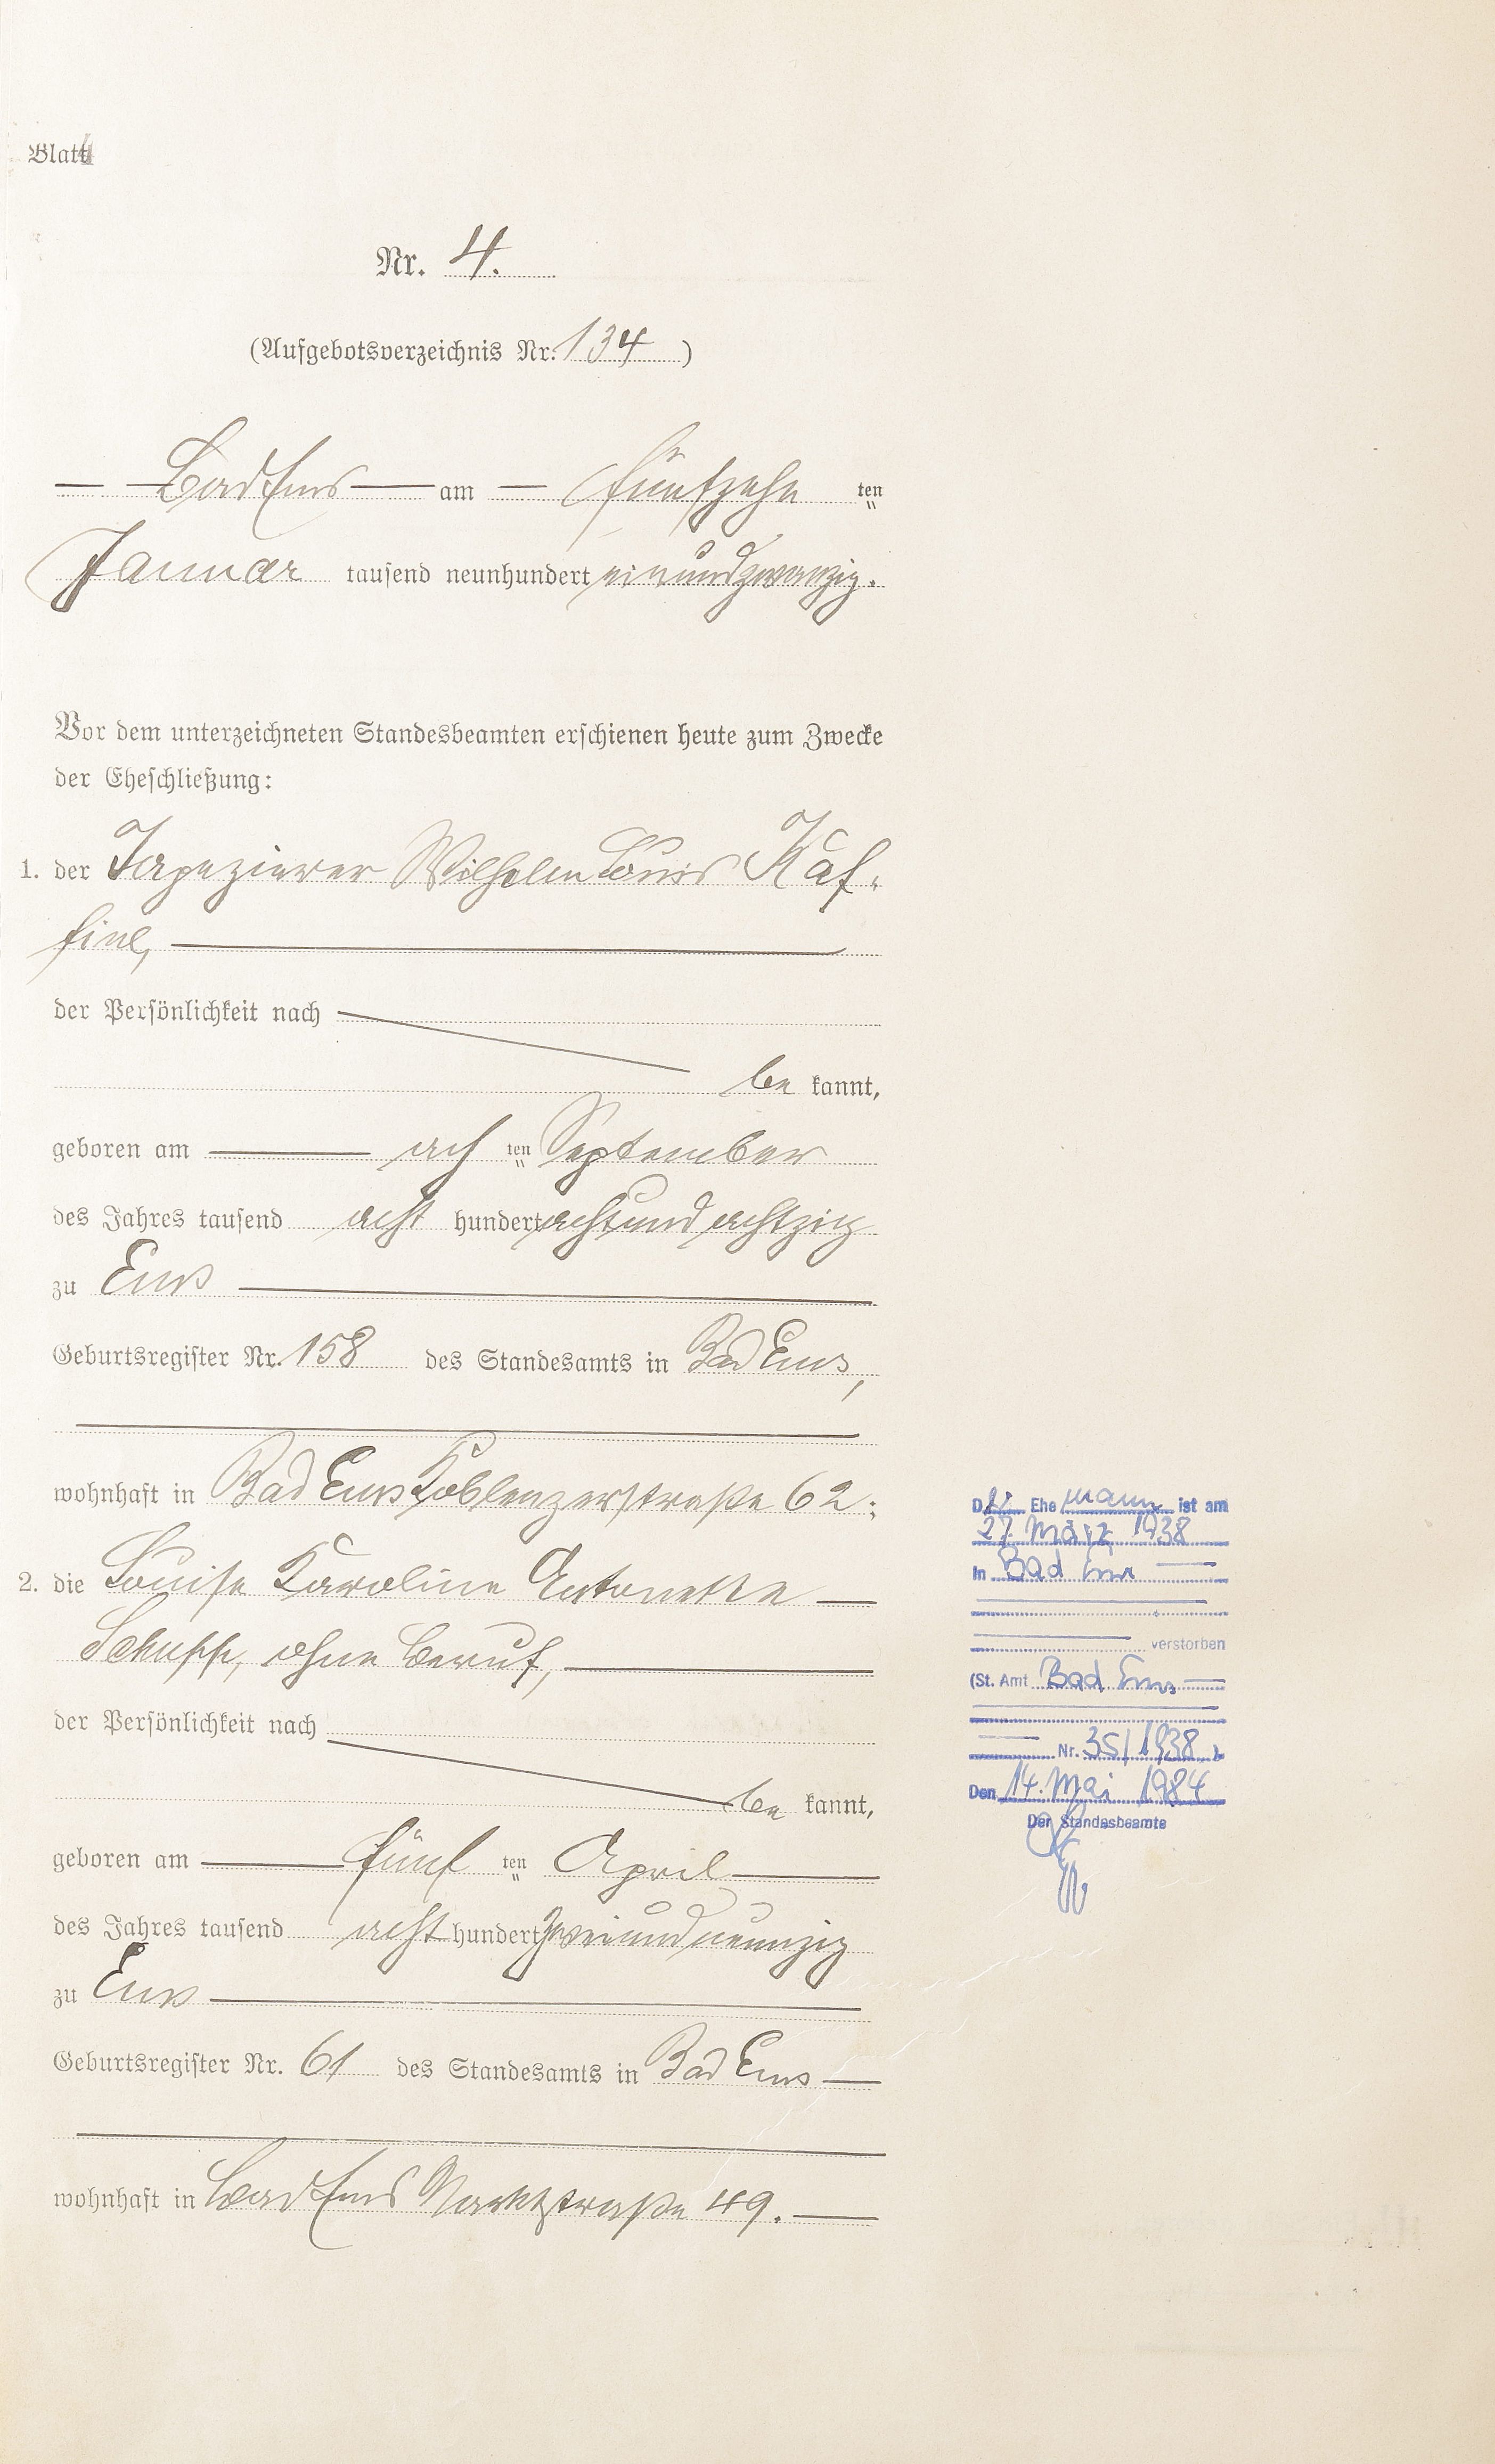 Blatt 4
Nr. 4.
(Aufgebotsverzeichnis Nr. 134)
— Bad Ems — am — fünfzehn ten
Januar tausend neunhundert einundzwanzig.
Vor dem unterzeichneten Standesbeamten erschienen heute zum Zwecke
der Eheschließung:
1. der Tapezierer Wilhelm Louis Käf-
der Persönlichkeit nach
be kannt,
geboren am — ach ten September
des Jahres tausend acht hundert achtundachtzig
zu Ems —
Geburtsregister Nr. 158 des Standesamts in Bad Ems,
wohnhaft in Bad Ems Koblenzerstraße 62;
2. die Louise Karoline Antonette —
Schupp, ohne Beruf, —
der Persönlichkeit nach
be kannt,
geboren am — fünf ten April —
des Jahres tausend acht hundert zweiundneunzig
zu Ems —
Geburtsregister Nr. 61 des Standesamts in Bad Ems —
wohnhaft in Bad Ems Marktstraße 49. —
Der Ehe mann ist am
27. März 1938
in Bad Ems —
verstorben
(St. Amt Bad Ems —
Nr. 35/1938)
Den 14. Mai 1984
Der Standesbeamte